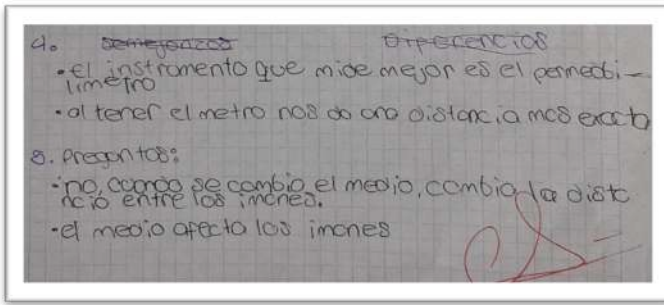 4. Semejanzas Diferencias
• el instrumento que mide mejor es el permeabi-
límetro
• al tener el metro nos da una distancia mas exacta
5. Preguntas:
• no, cuando se cambia el medio, cambia la dista
ncia entre los imanes.
• el medio afecta los imanes